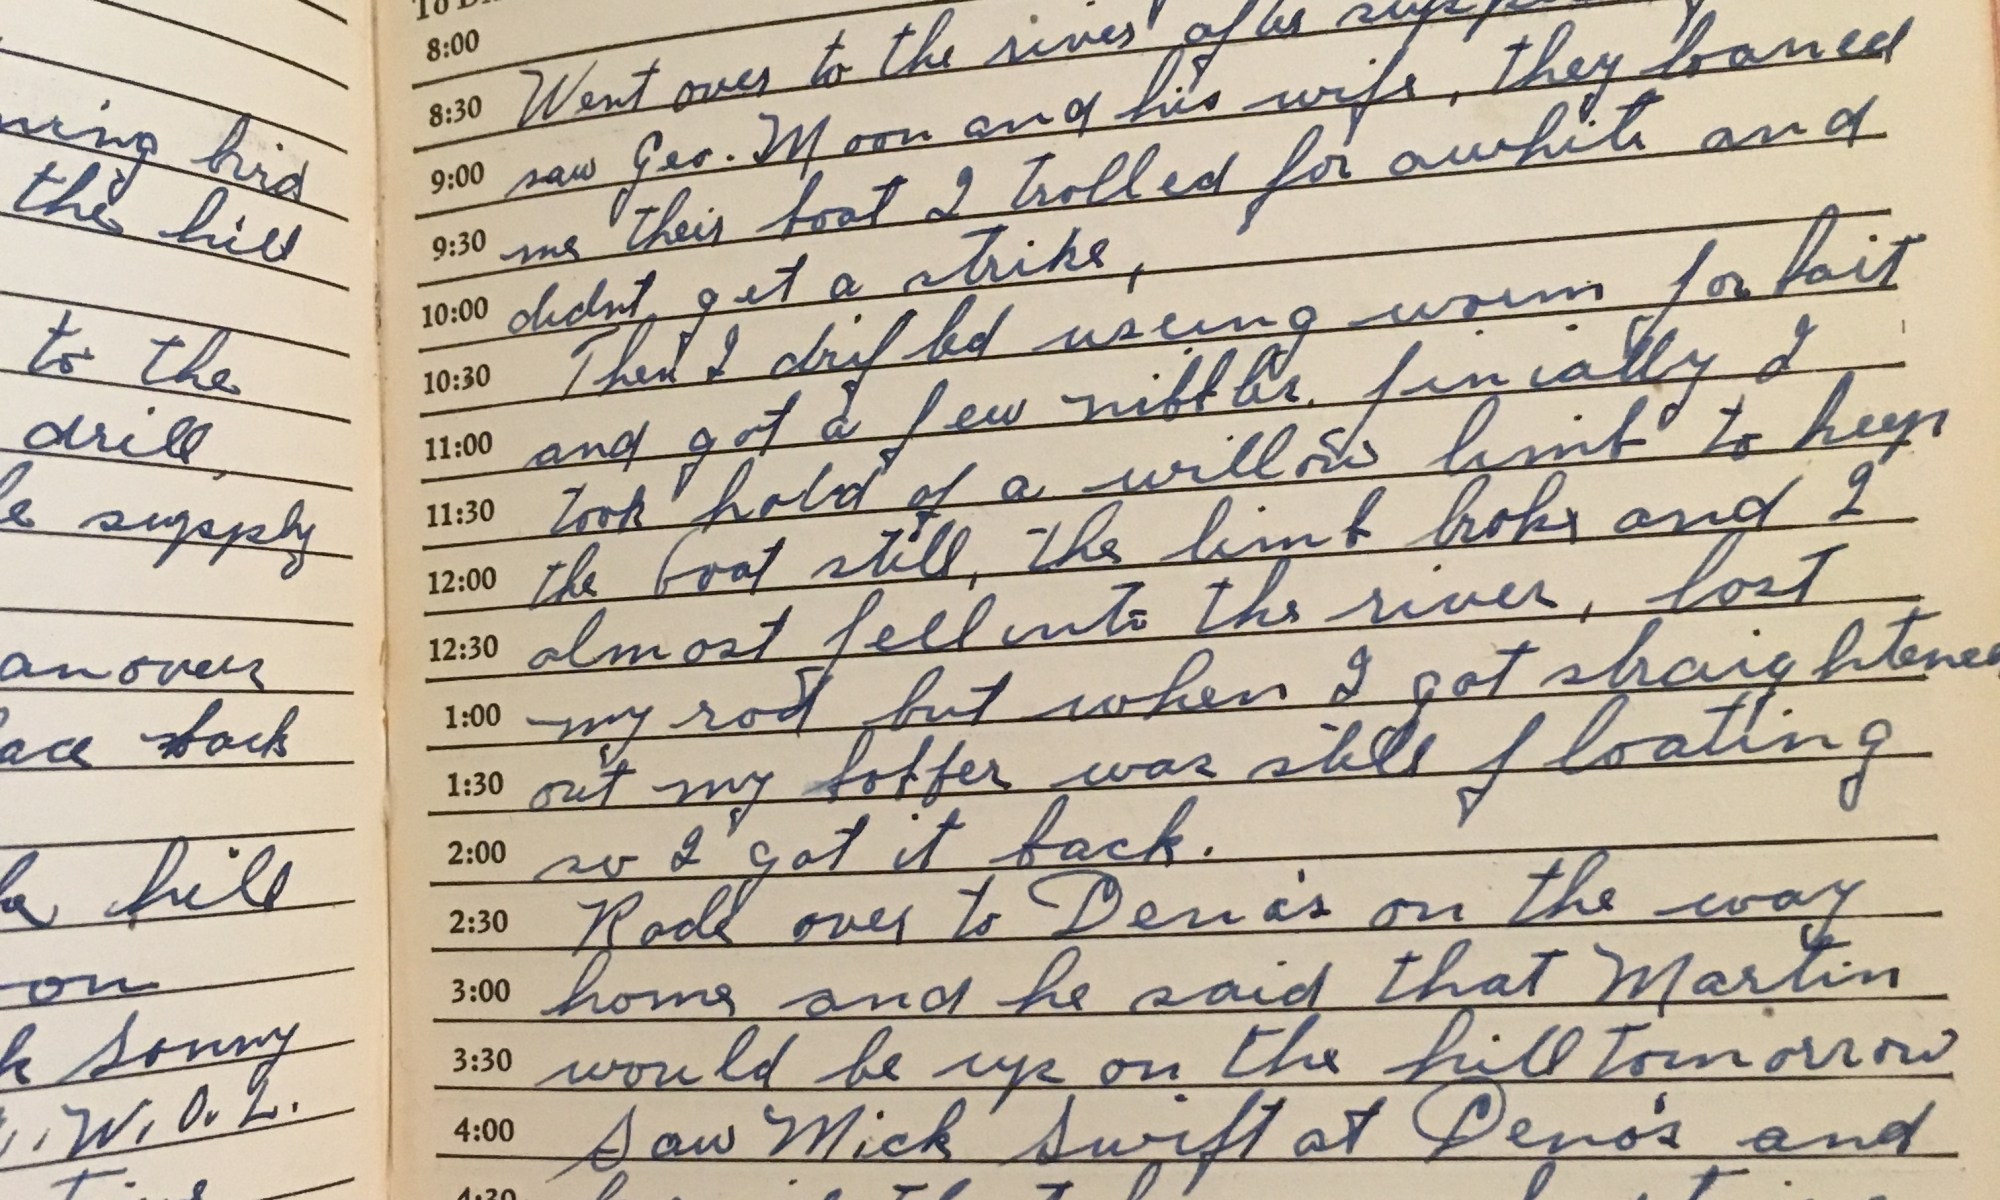 ning bird
the hill
to the
drill,
supply
over
back
hill
on
Sonny
W.O.L.
8:00
8:30 Went over to the river after
9:00 saw Geo. Moon and his wife, they loaned
9:30 me their boat I trolled for awhile and
10:00 didnt get a strike,
10:30 Then I drifted useing worm for bait
11:00 and got a few nibbles. finially I
11:30 took hold of a willow limb to keep
12:00 the boat still, the limb broke and I
12:30 almost fell into the river, lost
1:00 my rod but when I got straightened
1:30 out my bobber was still floating
2:00 so I got it back.
2:30 Rode over to Deno's on the way
3:00 home and he said that Martin
3:30 would be up on the hill tomorrow
4:00 Saw Mick Swift at Deno's and
4:30